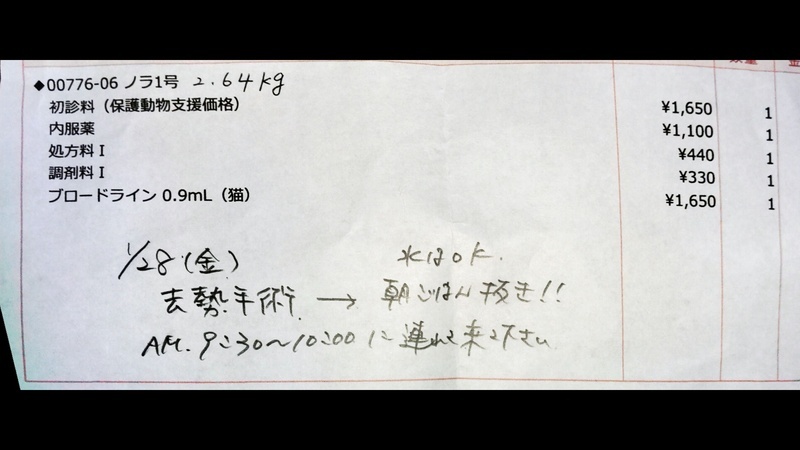 数量
◆00776-06 ノラ1号 2.64kg
初診料（保護動物支援価格） ¥1,650 1
内服薬 ¥1,100 1
処方料Ⅰ ¥440 1
調剤料Ⅰ ¥330 1
ブロードライン 0.9mL（猫） ¥1,650 1
1/28(金) 水はOK.
去勢手術 → 朝ごはん抜き!!
AM. 9:30〜10:00に連れて来て下さい